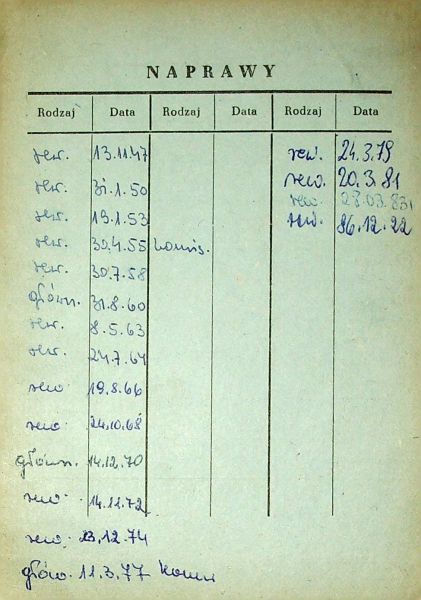 NAPRAWY
Rodzaj Data Rodzaj Data Rodzaj Data
rew. 13.11.47
rew. 31.1.50
rew. 19.1.53
rew. 30.4.55 komis.
rew. 30.7.58
główn. 31.8.60
rew. 8.5.63
rew. 24.7.64
rew. 19.8.66
rew. 24.10.68
główn. 14.12.70
rew. 14.11.72
rew. 13.12.74
głów. 11.3.77 komis
rew. 24.3.79
rew. 20.3.81
rew. 28.03.83
rew. 86.12.22